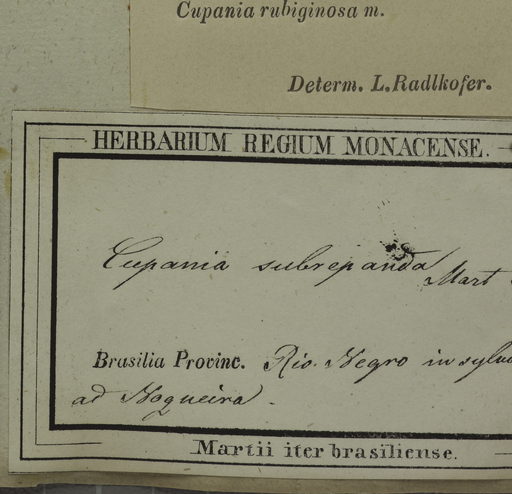 Cupania rubiginosa m.
Determ. L. Radlkofer.
HERBARIUM REGIUM MONACENSE.
Cupania subrepanda Mart
Brasilia Provinc. Rio. Negro in sylvis
ad Nogueira.
Martii iter brasiliense.